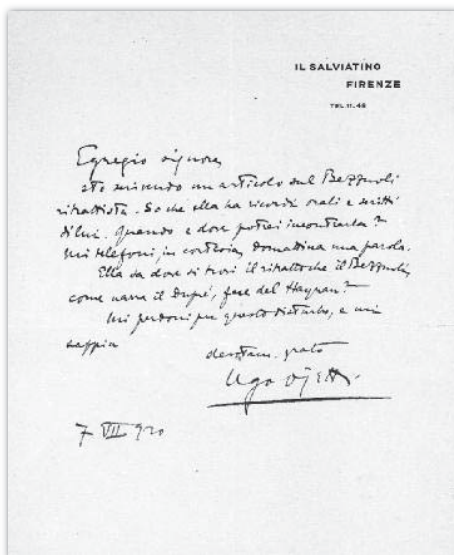 IL SALVIATINO
FIRENZE
TEL. 11.48
Egregio signore,
sto scrivendo un articolo sul Bezzuoli
ritrattista. So che ella ha ricordi orali e scritti
di lui. Quando e dove potrei incontrarla?
Mi telefoni, in cortesia, domattina una parola.
Ella sa dove si trovi il ritratto che il Bezzuoli,
come narra il Dupré, fece del
Mi perdoni per questo disturbo, e mi
sappia
devotam. grato
Ugo Ojetti
7 VII 920